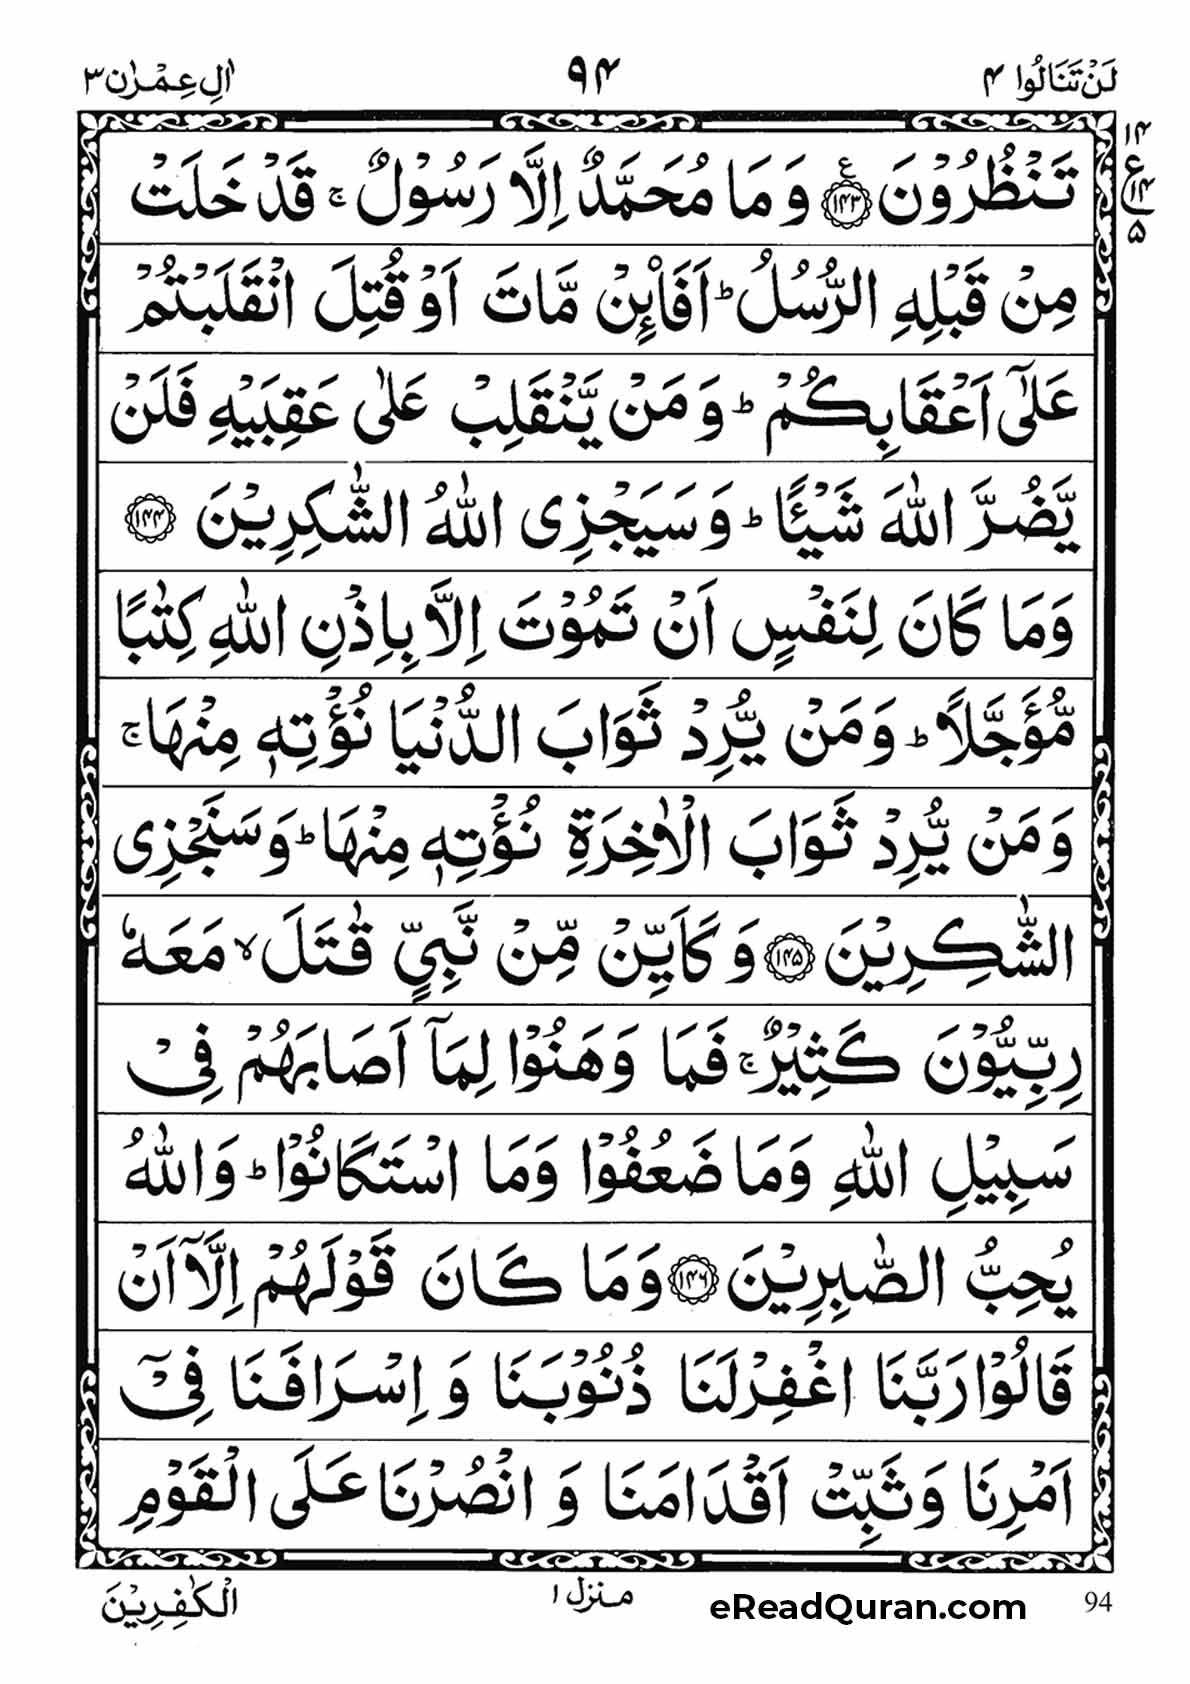 لَنۡ تَنَالُوا ۴ ۹۴ اٰلِ عِمۡرٰن ۳
۱۴
ع
۱۴
۵
تَنۡظُرُوۡنَ ﴿۱۴۳﴾ؑ وَ مَا مُحَمَّدٌ اِلَّا رَسُوۡلٌ ۚ قَدۡ خَلَتۡ
مِنۡ قَبۡلِهِ الرُّسُلُ ؕ اَفَا۠ئِنۡ مَّاتَ اَوۡ قُتِلَ انۡقَلَبۡتُمۡ
عَلٰۤى اَعۡقَابِكُمۡ ؕ وَ مَنۡ يَّنۡقَلِبۡ عَلٰى عَقِبَيۡهِ فَلَنۡ
يَّضُرَّ اللّٰهَ شَيۡـًٔا ؕ وَ سَيَجۡزِى اللّٰهُ الشّٰكِرِيۡنَ ﴿۱۴۴﴾
وَمَا كَانَ لِنَفۡسٍ اَنۡ تَمُوۡتَ اِلَّا بِاِذۡنِ اللّٰهِ كِتٰبًا
مُّؤَجَّلًا ؕ وَ مَنۡ يُّرِدۡ ثَوَابَ الدُّنۡيَا نُؤۡتِهٖ مِنۡهَا ۚ
وَ مَنۡ يُّرِدۡ ثَوَابَ الۡاٰخِرَةِ نُؤۡتِهٖ مِنۡهَا ؕ وَ سَنَجۡزِى
الشّٰكِرِيۡنَ ﴿۱۴۵﴾ وَ كَاَيِّنۡ مِّنۡ نَّبِىٍّ قٰتَلَ ۙ مَعَهٗ
رِبِّيُّوۡنَ كَثِيۡرٌ ۚ فَمَا وَهَنُوۡا لِمَاۤ اَصَابَهُمۡ فِىۡ
سَبِيۡلِ اللّٰهِ وَمَا ضَعُفُوۡا وَمَا اسۡتَكَانُوۡا ؕ وَاللّٰهُ
يُحِبُّ الصّٰبِرِيۡنَ ﴿۱۴۶﴾ وَمَا كَانَ قَوۡلَهُمۡ اِلَّاۤ اَنۡ
قَالُوۡا رَبَّنَا اغۡفِرۡ لَنَا ذُنُوۡبَنَا وَ اِسۡرَافَنَا فِىۡۤ
اَمۡرِنَا وَ ثَبِّتۡ اَقۡدَامَنَا وَ انۡصُرۡنَا عَلَى الۡقَوۡمِ
الۡكٰفِرِيۡنَ منزل ۱ eReadQuran.com 94